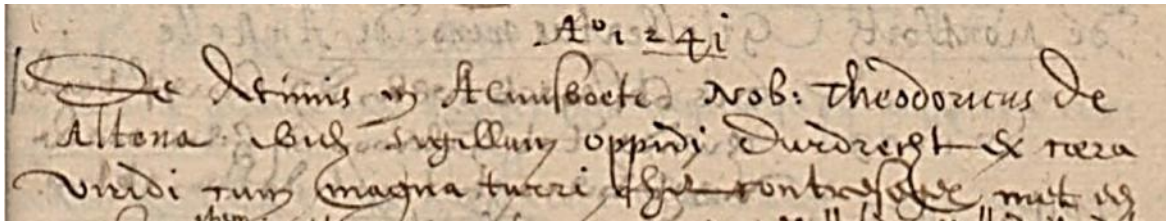 Aº 1241
De decimis in Almsvoete. Nob: Theodoricus de
Altena. ibid. sigillum oppidi Durdrecht ex cæra
viridi cum magna turri met een